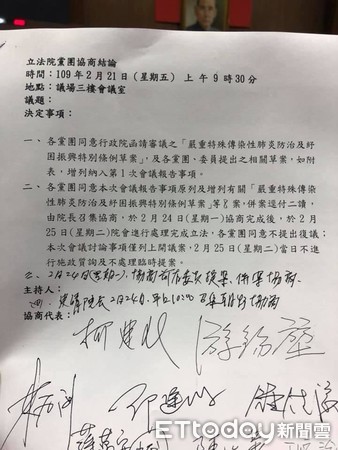 立法院黨團協商結論
時間：109年2月21日（星期五）上午9時30分
地點：議場三樓會議室
議題：
決定事項：
一、各黨團同意行政院函請審議之「嚴重特殊傳染性肺炎防治及紓
困振興特別條例草案」，及各黨團、委員提出之相關草案，如附
表，增列納入第1次會議報告事項。
二、各黨團同意本次會議報告事項原列及增列有關「嚴重特殊傳染
性肺炎防治及紓困振興特別條例草案」等8案，併案逕付二讀，
由院長召集協商，於2月24日（星期一）協商完成後，於2月
25日（星期二）院會進行處理完成立法，各黨團同意不提出復議；
本次會議討論事項僅列上開議案，2月25日（星期二）當日不進
行施政質詢及不處理臨時提案。
三、2月24日（星期一）協商前有委員提案，併案協商。
主持人：
四、2月24日
協商代表：
柯建銘
ETtoday新聞雲